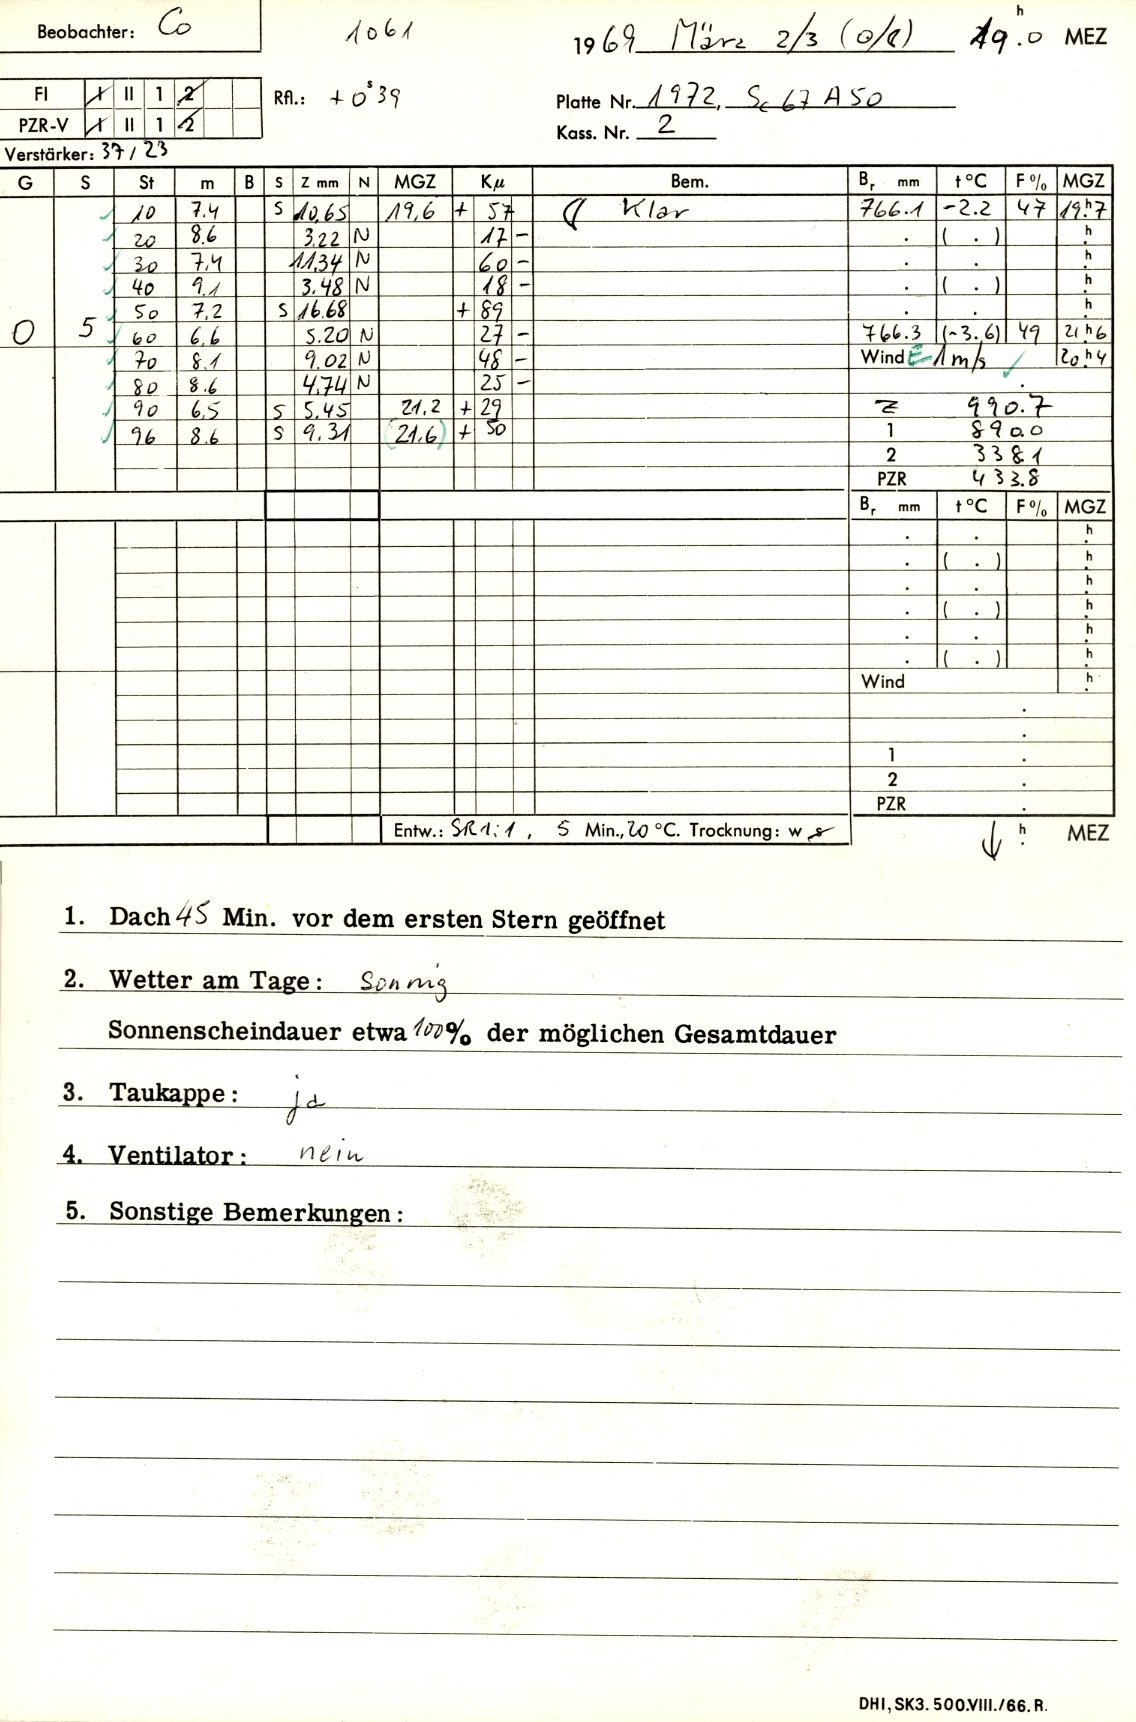 Beobachter: Co 1061 1969 März 2/3 (0/6) 19.h0 MEZ
FI I II 1 2 Rfl.: +0s39 Platte Nr. 1972, Sc 67 A 50
PZR-V I II 1 2 Kass. Nr. 2
Verstärker: 37 / 23
G S St m B S Z mm N MGZ Kμ Bem. Br mm t°C F% MGZ
10 7.4 S 10.65 19,6 + 57 Klar 766.1 -2.2 47 19.h7
20 8.6 3.22 N 17 - . ( . ) .h
30 7,4 11.34 N 60 - . . .h
40 9.1 3.48 N 18 - . ( . ) .h
50 7,2 S 16.68 + 89 . . .h
0 5 60 6,6 5.20 N 27 - 766.3 (-3.6) 49 21.h6
70 8.1 9.02 N 48 - Wind E 1 m/s 20.h4
80 8.6 4.74 N 25 - .
90 6,5 S 5.45 21,2 + 29 Z 990.7
96 8.6 S 9.31 (21.6) + 50 1 890.0
2 338.1
PZR 433.8
Br mm t°C F% MGZ
. . .h
. ( . ) .h
. . .h
. ( . ) .h
. . .h
. ( . ) .h
Wind .h
.
.
1 .
2 .
PZR .
Entw.: SR 1:1, 5 Min., 20 °C. Trocknung: w s ↓ .h MEZ
1. Dach 45 Min. vor dem ersten Stern geöffnet
2. Wetter am Tage: Sonnig
Sonnenscheindauer etwa 100% der möglichen Gesamtdauer
3. Taukappe: ja
4. Ventilator: nein
5. Sonstige Bemerkungen:
DHI, SK3. 500.VIII./66. R.